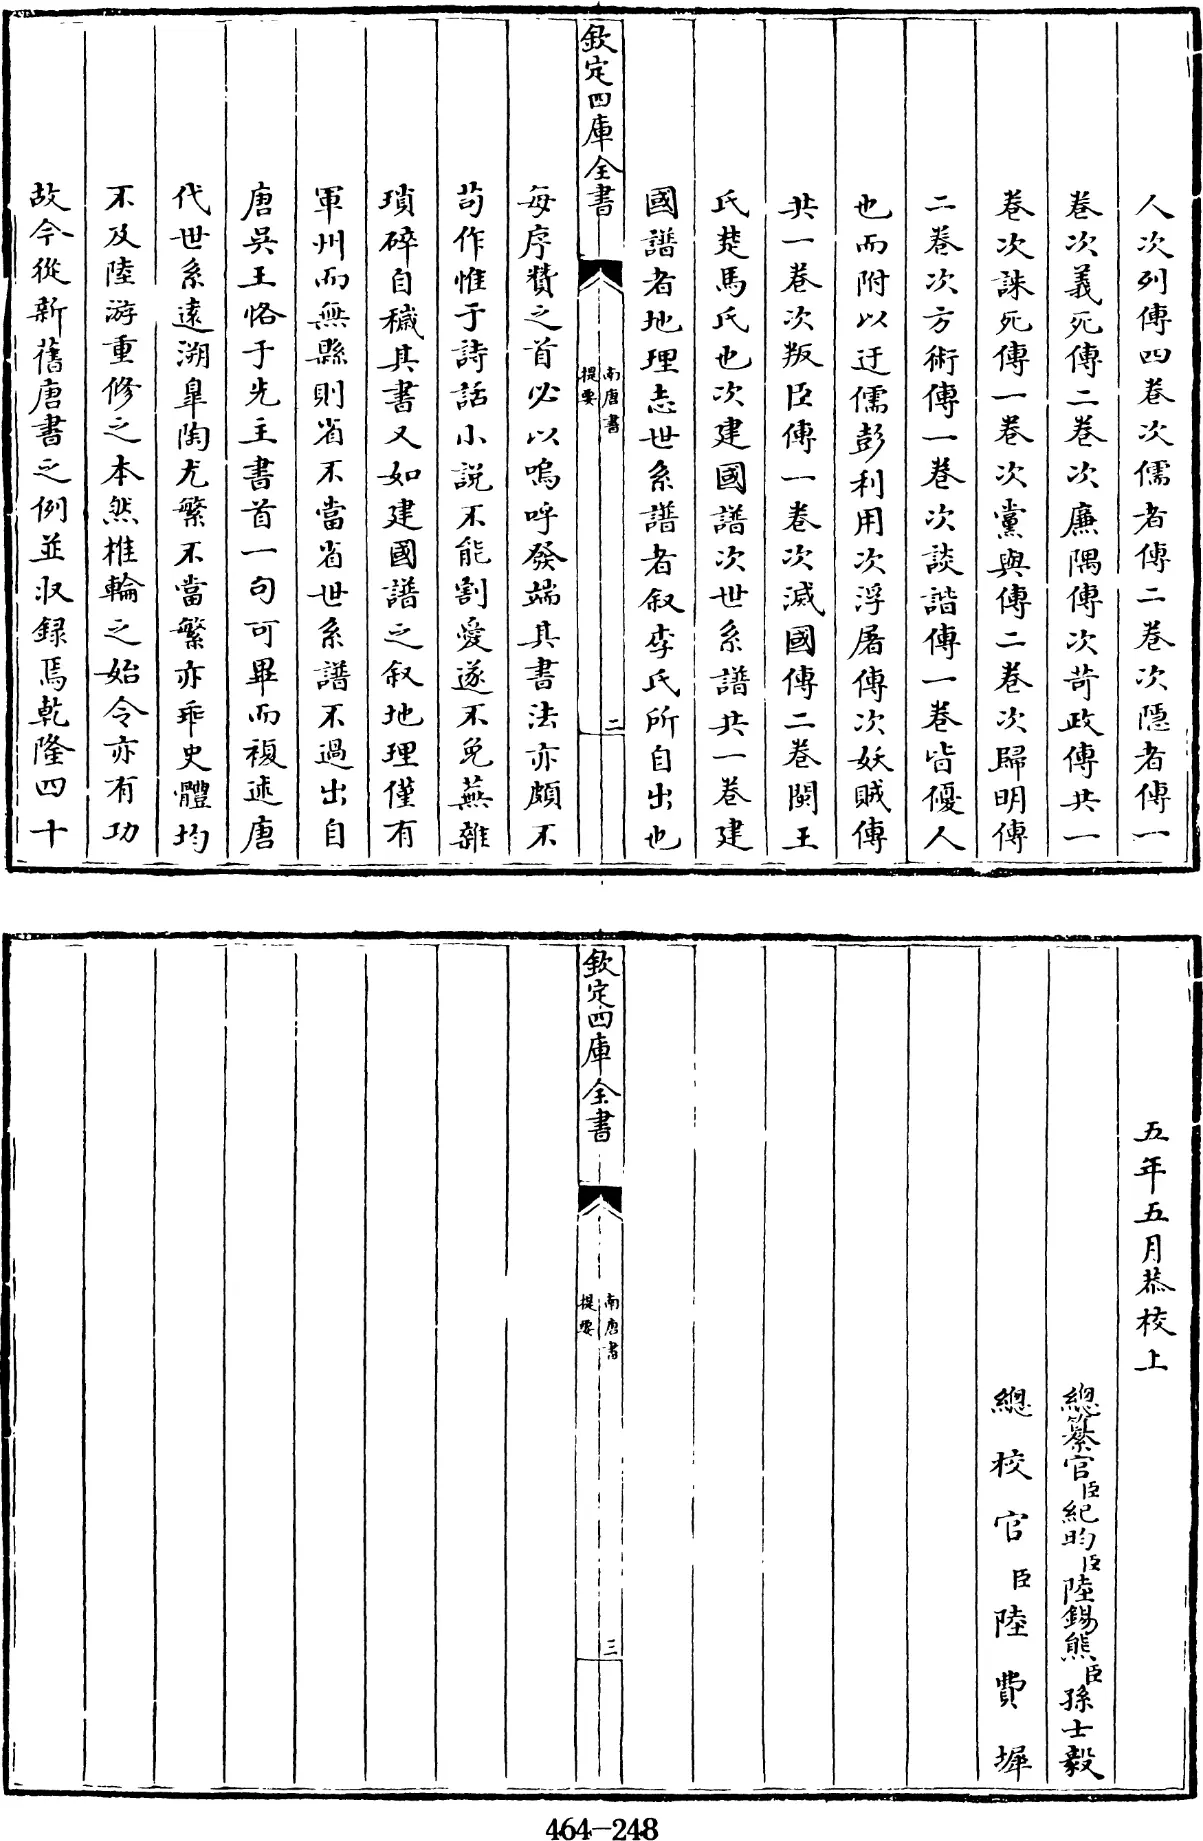 人次列傳四卷次儒者傳二卷次隱者傳一
卷次義死傳二卷次廉隅傳次苛政傳共一
卷次誅死傳一卷次黨與傳二卷次歸明傳
二卷次方術傳一卷次談諧傳一卷皆優人
也而附以迂儒彭利用次浮屠傳次妖賊傳
共一卷次叛臣傳一卷次滅國傳二卷閩王
氏楚馬氏也次建國譜次世系譜共一卷建
國譜者地理志世系譜者叙李氏所自出也
欽定四庫全書
南唐書
提要
二
每序贊之首必以嗚呼發端其書法亦頗不
苟作惟于詩話小説不能割愛遂不免蕪雜
瑣碎自穢其書又如建國譜之叙地理僅有
軍州而無縣則省不當省世系譜不過出自
唐吳王恪于先主書首一句可畢而複述唐
代世系遠溯臯陶尤繁不當繁亦乖史體均
不及陸游重修之本然椎輪之始令亦有功
故今從新舊唐書之例並収録焉乾隆四十
五年五月恭校上
總纂官臣紀昀臣陸錫熊臣孫士毅
總校官臣陸費墀
欽定四庫全書
南唐書
提要
三
464-248